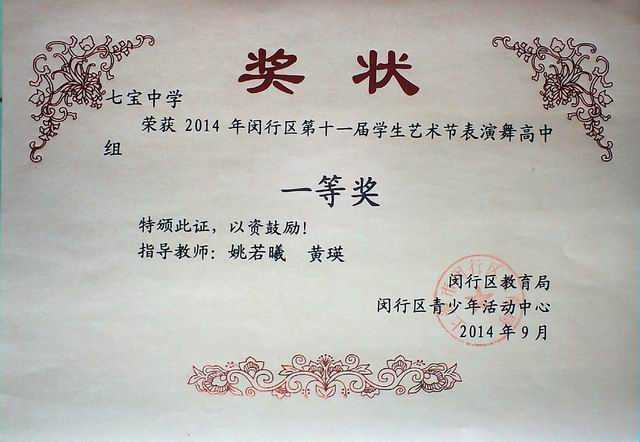 奖 状
七宝中学
荣获 2014 年闵行区第十一届学生艺术节表演舞高中
组
一等奖
特颁此证，以资鼓励！
指导教师：姚若曦 黄瑛
闵行区教育局
闵行区青少年活动中心
2014 年 9 月